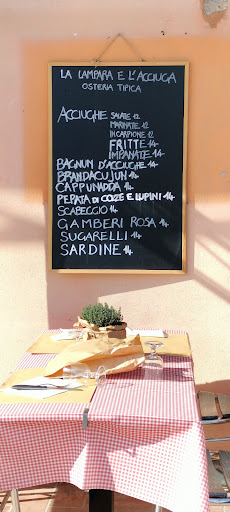 LA LAMPARA E L'ACCIUGA
OSTERIA TIPICA
ACCIUGHE SALATE 12
MARINATE 12
IN CARPIONE 12
FRITTE 14
IMPANATE 14
BAGNUN D'ACCIUGHE 14
BRANDACUJUN 14
CAPPUNADDA 14
PEPATA DI COZZE E LUPINI 14
SCABECCIO 14
GAMBERI ROSA 14
SUGARELLI 14
SARDINE 14